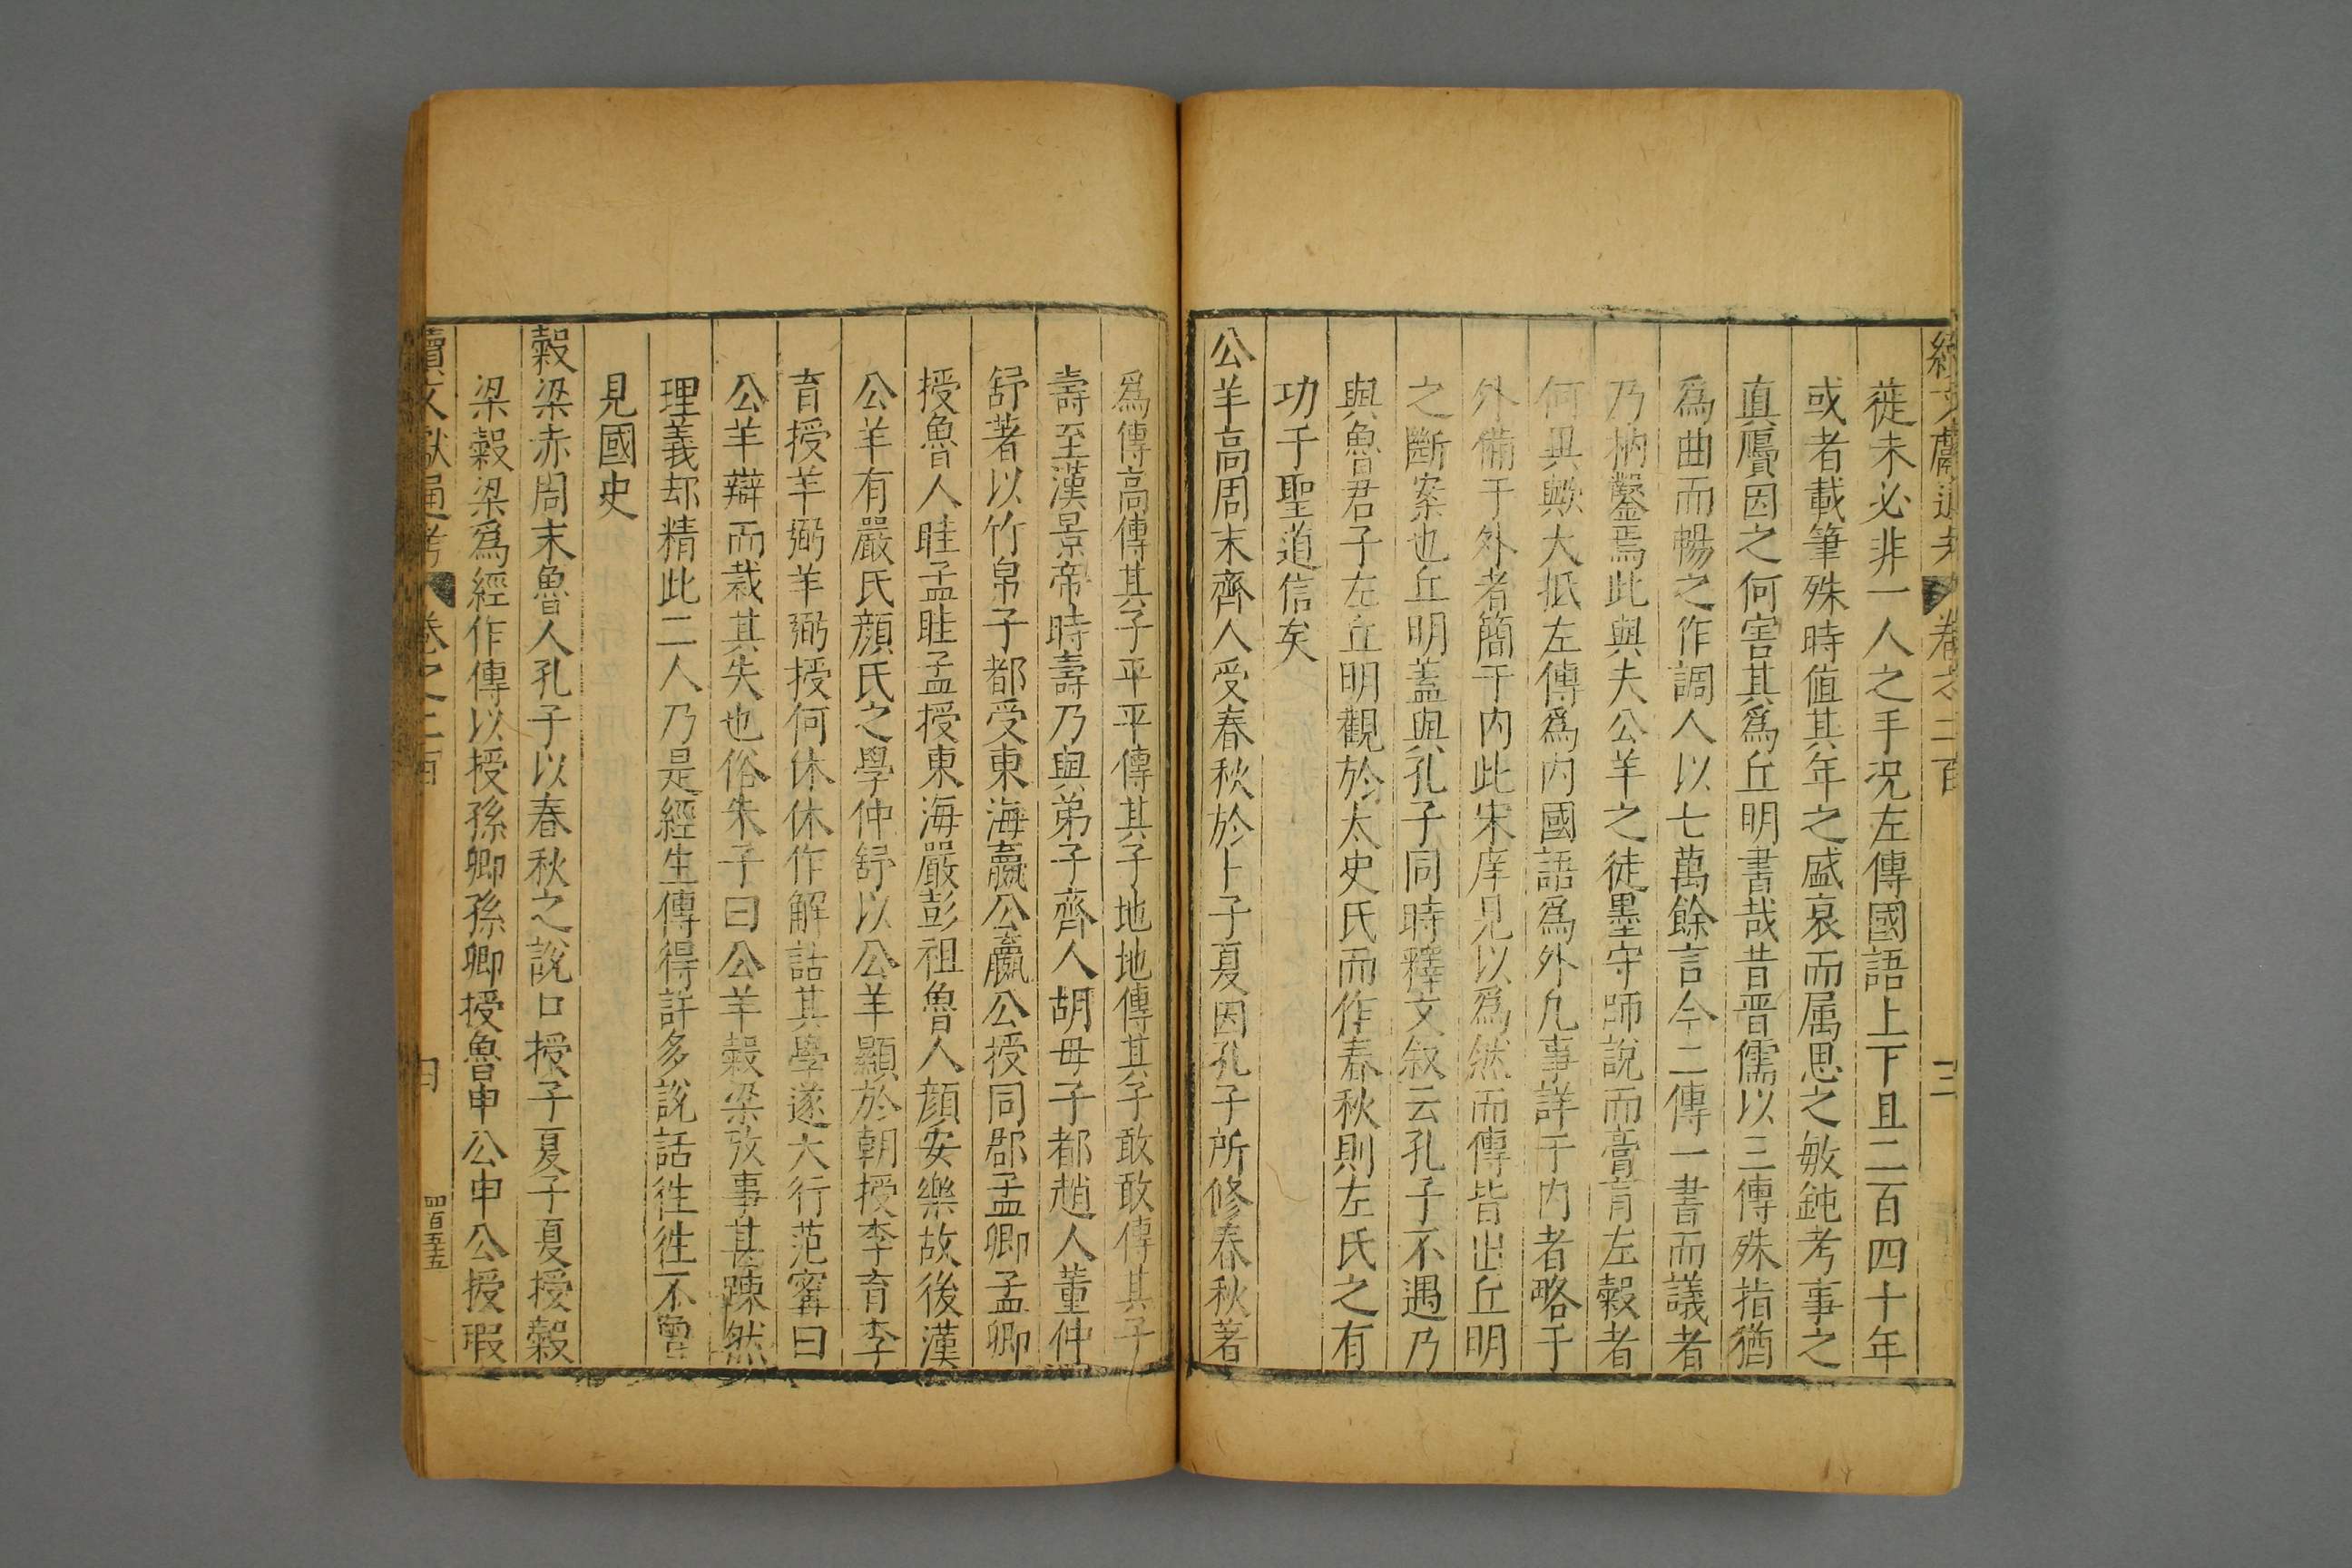 續文獻通考 卷之二百 三
蓰未必非一人之手况左傳國語上下且二百四十年
或者載筆殊時值其年之盛衰而属思之敏鈍考事之
真贋因之何害其爲丘明書哉昔晋儒以三傳殊指猶
爲曲而暢之作調人以七萬餘言今二傳一書而議者
乃枘鑿焉此與夫公羊之徒墨守師說而膏肓左穀者
何異歟大抵左傳爲内國語爲外凡事詳于内者略于
外備于外者簡于内此宋庠見以爲然而傳皆出丘明
之斷案也丘明蓋與孔子同時釋文叙云孔子不遇乃
與魯君子左丘明觀於太史氏而作春秋則左氏之有
功于聖道信矣
公羊高周末齊人受春秋於卜子夏因孔子所修春秋著
爲傳高傳其子平平傳其子地地傳其子敢敢傳其子
壽至漢景帝時壽乃與弟子齊人胡毋子都趙人董仲
舒著以竹帛子都受東海嬴公嬴公授同郡孟卿孟卿
授魯人眭孟眭孟授東海嚴彭祖魯人顔安樂故後漢
公羊有嚴氏顔氏之學仲舒以公羊顯於朝授李育李
育授羊弼羊弼授何休休作解詁其學遂大行范甯曰
公羊辯而裁其失也俗朱子曰公羊穀梁攷事甚踈然
理義却精此二人乃是經生傳得許多說話徃徃不曾
見國史
穀梁赤周末魯人孔子以春秋之說口授子夏子夏授穀
梁穀梁爲經作傳以授孫卿孫卿授魯申公申公授瑕
續文獻通考 卷之二百 四 四百五十五